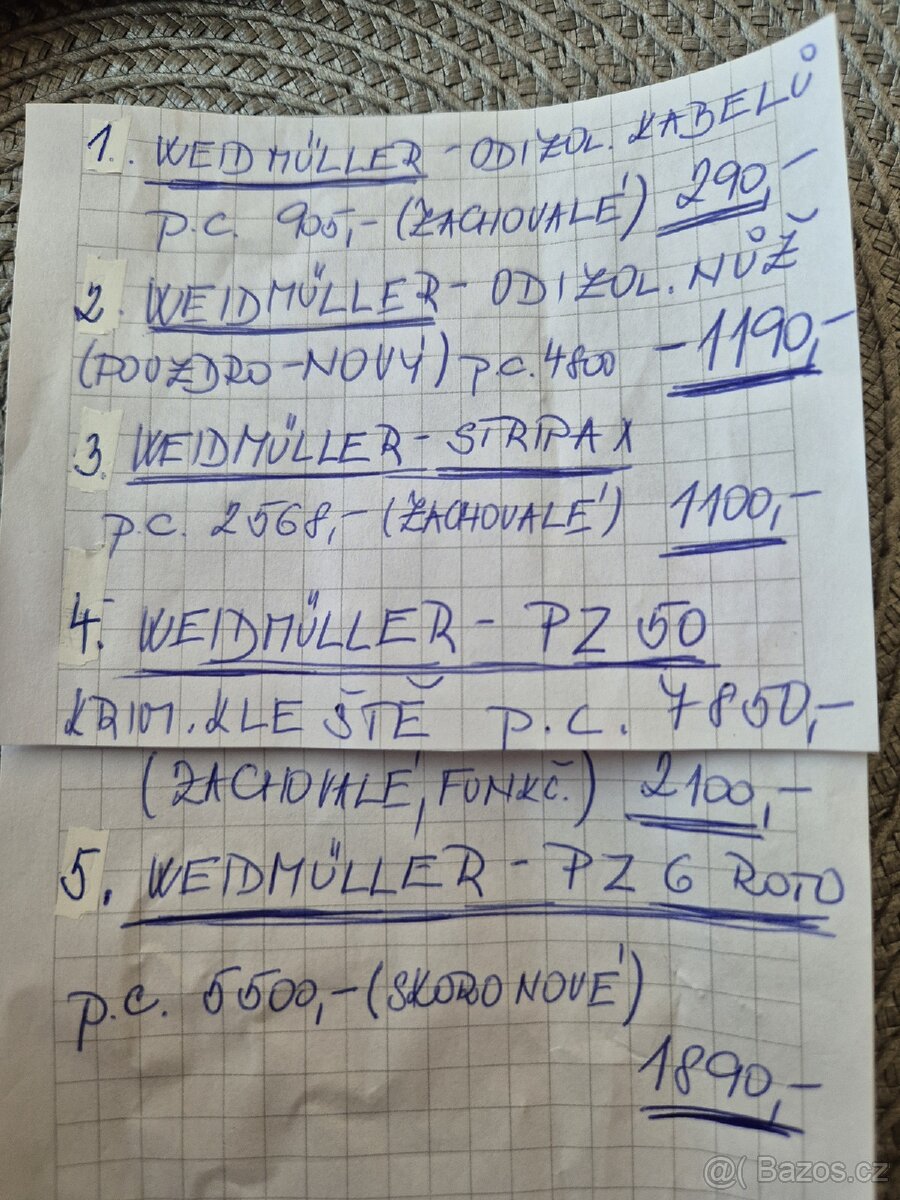 1. WEIDMÜLLER - ODIZOL. KABELŮ
p.c. 905,- (ZACHOVALÉ) 290,-
2. WEIDMÜLLER - ODIZOL. NŮŽ
(POUZDRO - NOVÝ) p.c. 4800 - 1190,-
3. WEIDMÜLLER - STRIPAX
p.c. 2568,- (ZACHOVALÉ) 1100,-
4. WEIDMÜLLER - PZ 50
KRIM. KLEŠTĚ p.c. 7850,-
(ZACHOVALÉ, FUNKČ.) 2100,-
5. WEIDMÜLLER - PZ 6 ROTO
p.c. 5500,- (SKORO NOVÉ)
1890,-
@( Bazos.cz